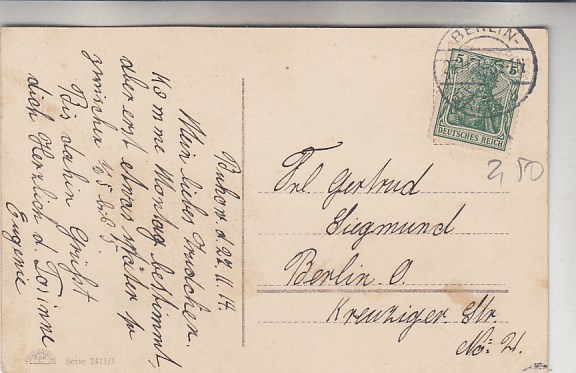 Bukow. d. 22.II.14.
Mein liebes Trudchen.
Komme Montag bestimmt
aber erst etwas später
zwischen ½5 bis 5
Bis dahin Grüßt
dich Herzlich d.
Eugenie
BERLIN
5 5
DEUTSCHES REICH
2,50
Frl. Gertrud
Siegmund
Berlin O.
Kreuziger Str.
No: 21.
Serie 2411/5